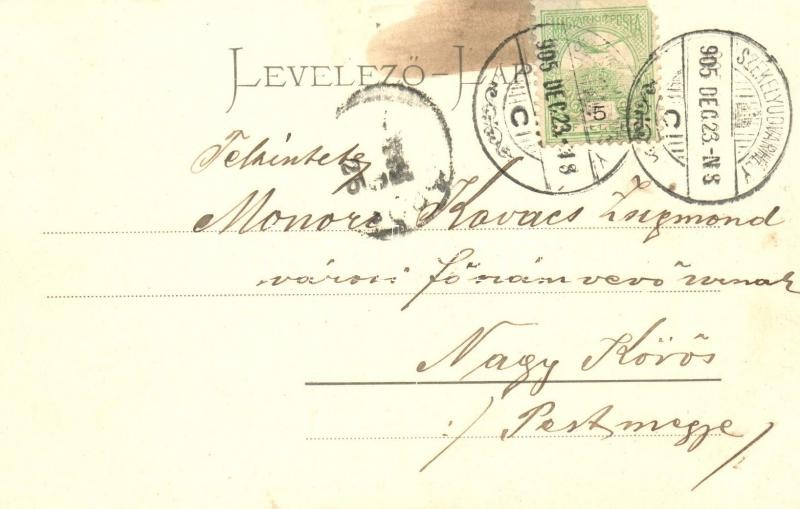 LEVELEZŐ-LAP
MAGYAR KIR. POSTA
5
905 DEC 23. N8
C
SZÉKELYUDVARHELY
905 DEC 23. N8
C
25
Tekintetes
Monori Kovács Zsigmond
városi főszámvevő urnak
Nagy Körös
:/ Pestmegye /